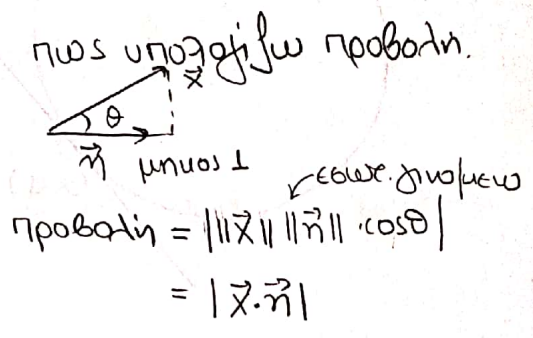 πως υπολογίζω προβολή.
x⃗
θ
n⃗ μηκος 1
εσωτ. γινομενο
προβολή = |‖x⃗‖ ‖n⃗‖ ·cosθ|
= |x⃗·n⃗|